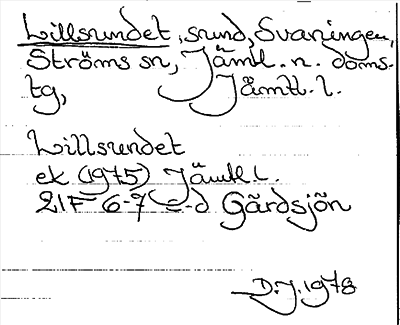 Lillsundet, sund, Svaningen,
Ströms sn, Jämtl. n. doms-
tg, Jämtl. l.
Lillsundet
ek (1975) Jämtl l.
21F 6-7 c-d Gärdsjön
D.J. 1978